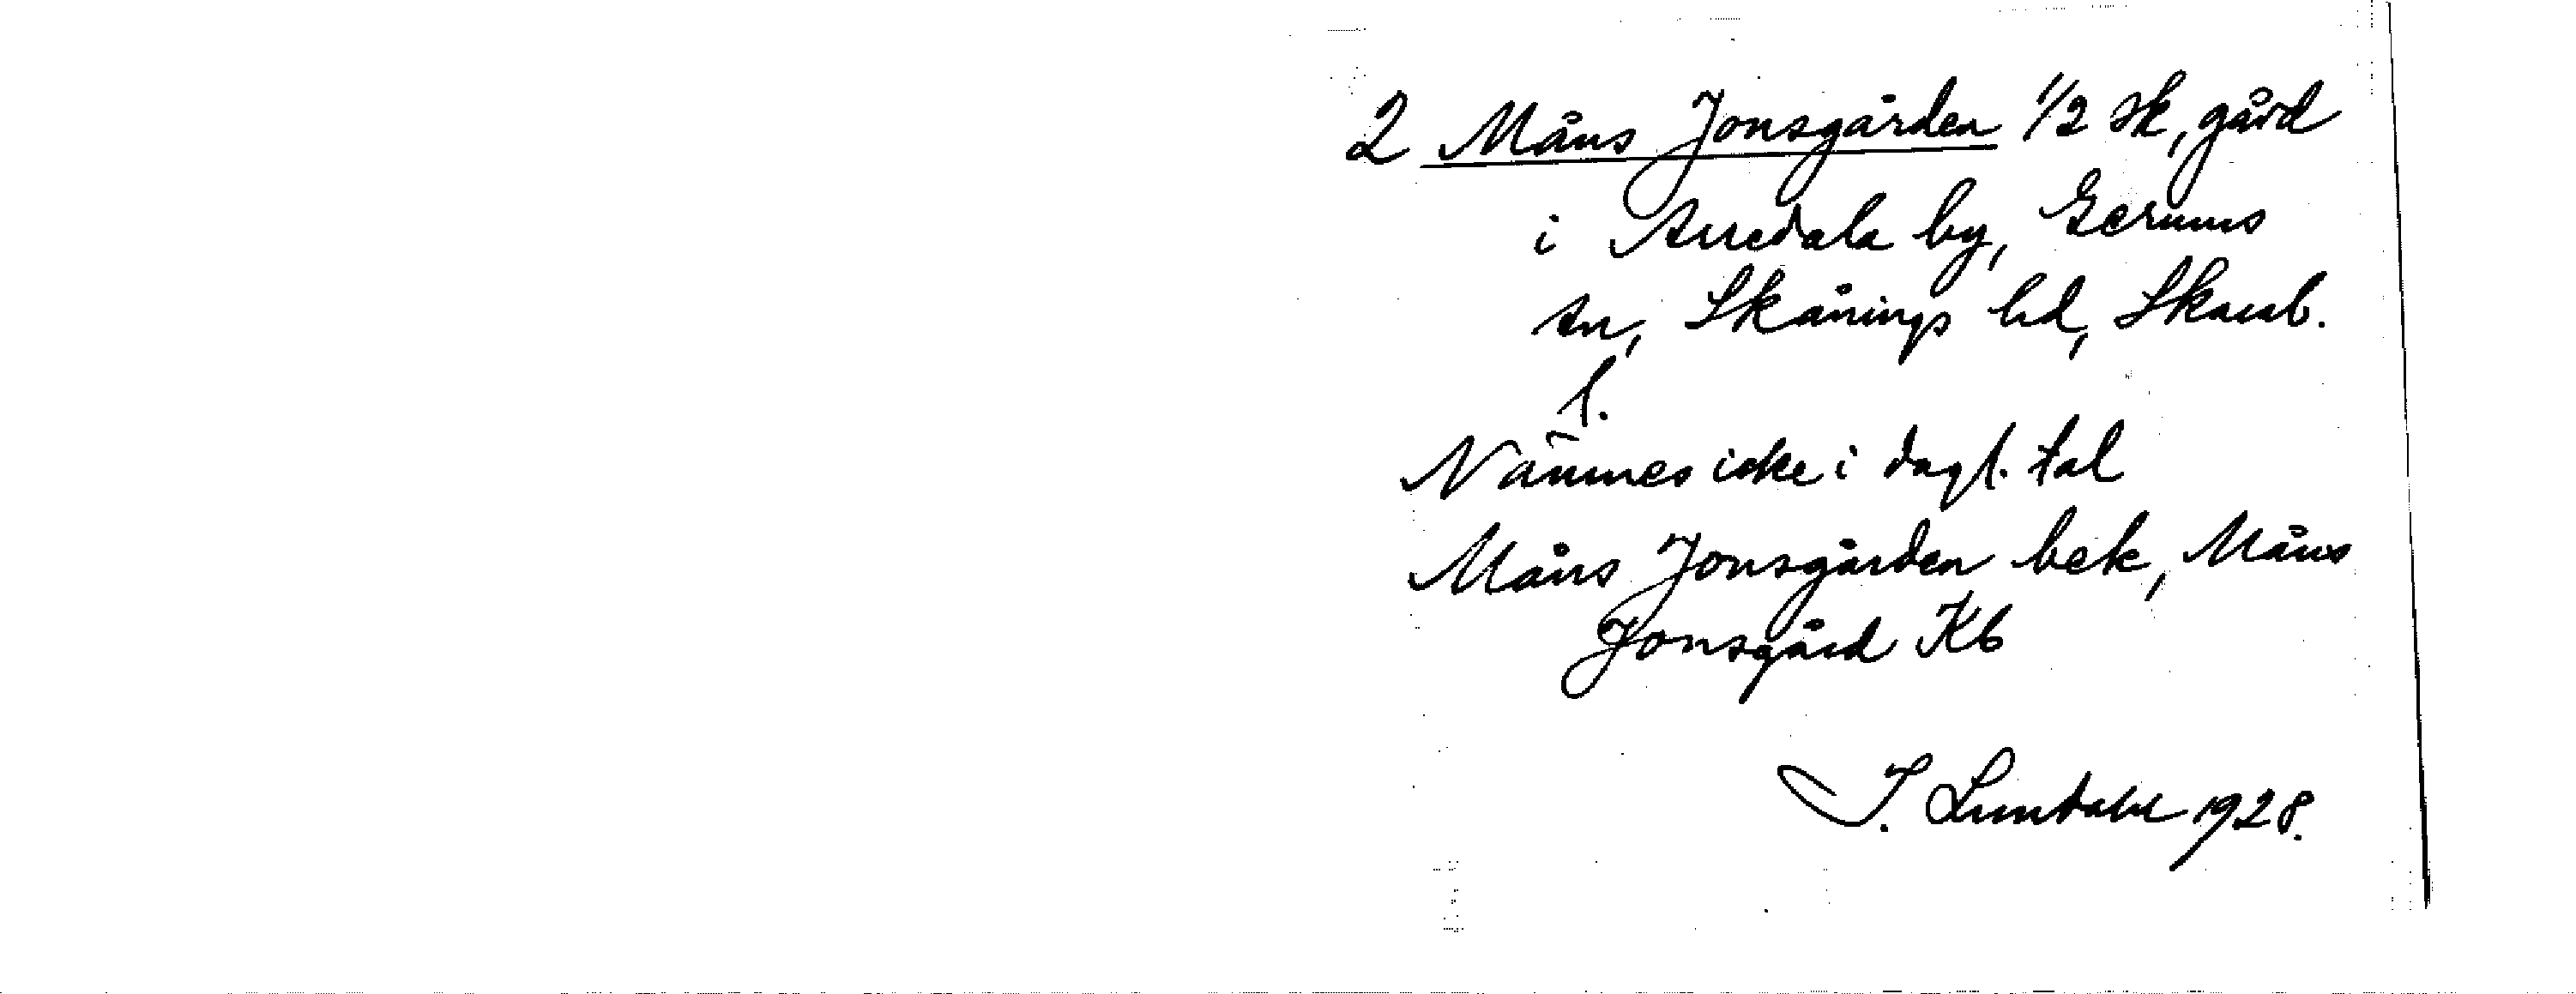 2 Måns Jonsgården 1/2 sk, gård
i Arredala by, Gerums
sn, Skånings hd, Skarab.
l.
Nämnes icke i dagl. tal
Måns Jonsgården bek, Måns
Jonsgård Kb
I. Lundahl 1928.